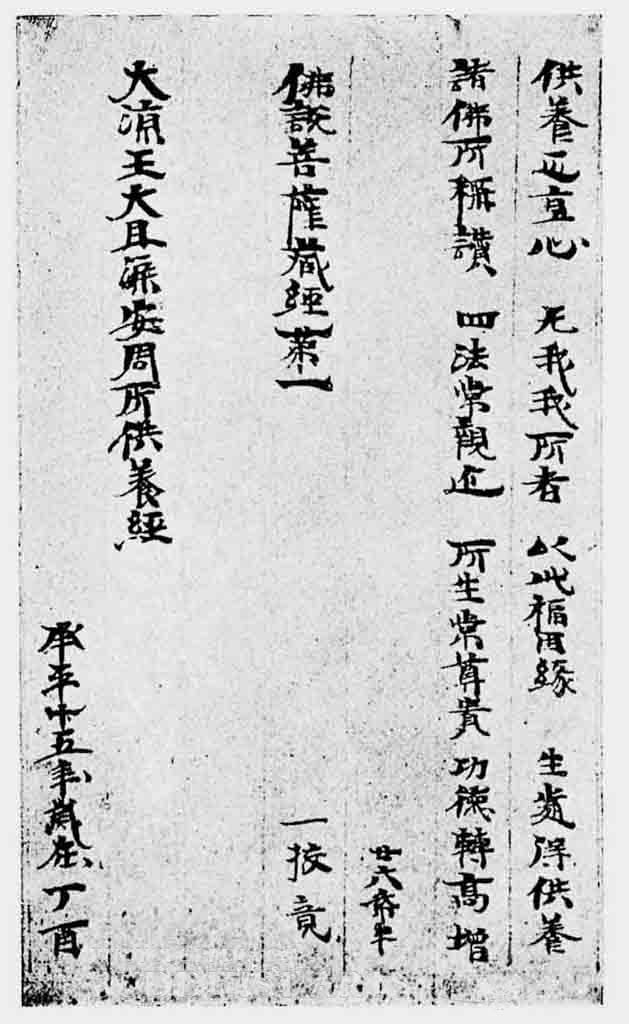 供養正直心　无我我所者　以此福因緣　生處得供養
諸佛所稱讚　四法常親近　所生常尊貴　功德轉高增
廿六紙半
佛說菩薩藏經第一　一挍竟
大涼王大且渠安周所供養經
承平十五年歲在丁酉